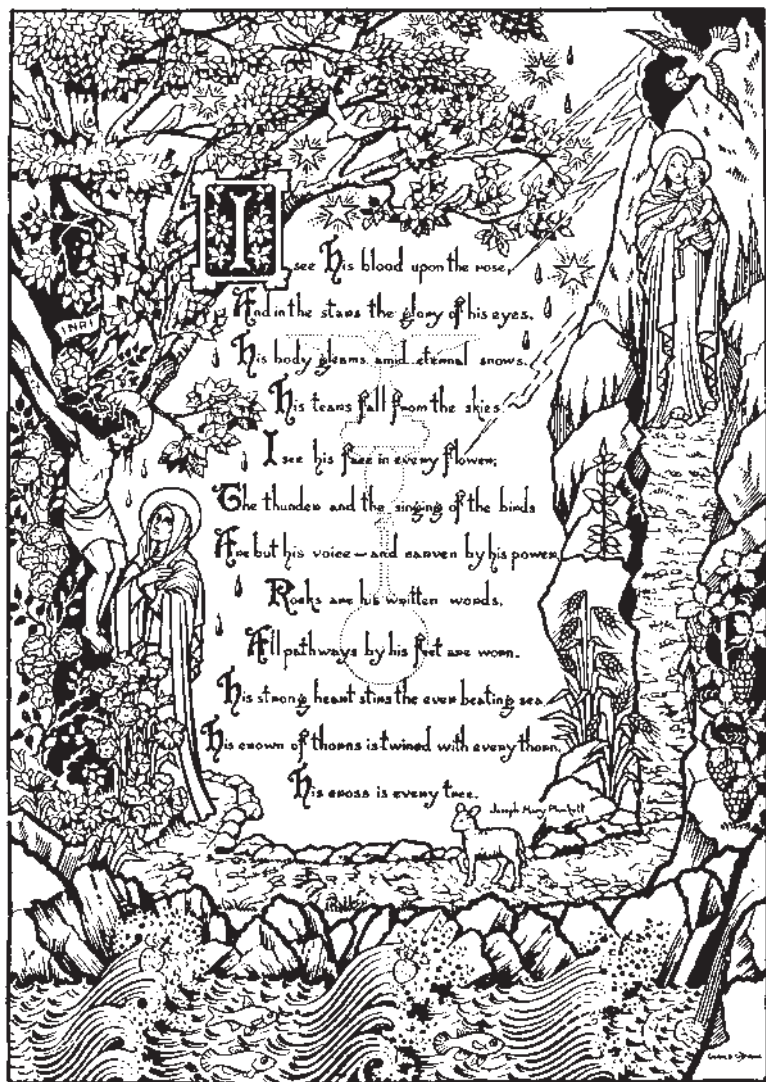 INRI
I see his blood upon the rose,
And in the stars the glory of his eyes,
His body gleams amid eternal snows,
His tears fall from the skies.
I see his face in every flower;
The thunder and the singing of the birds
Are but his voice—and carven by his power
Rocks are his written words.
All pathways by his feet are worn.
His strong heart stirs the ever beating sea,
His crown of thorns is twined with every thorn,
His cross is every tree.
Joseph Mary Plunkett